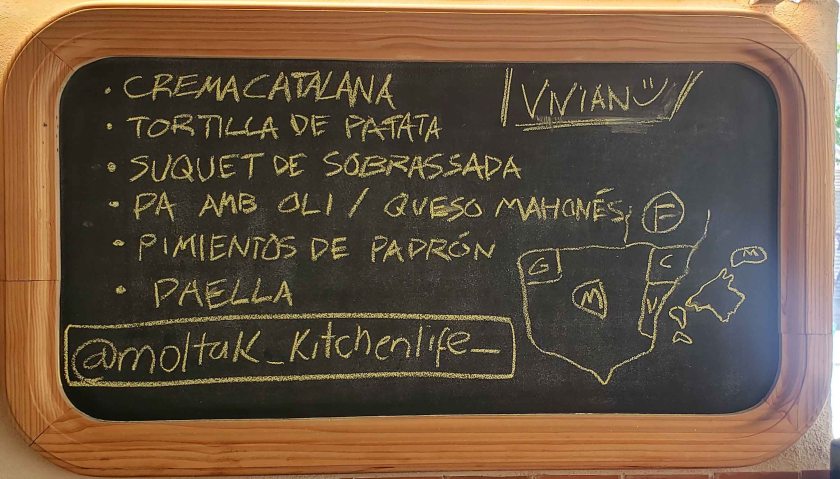 • CREMA CATALANA
• TORTILLA DE PATATA
• SUQUET DE SOBRASSADA
• PA AMB OLI / QUESO MAHONÉS
• PIMIENTOS DE PADRÓN
• PAELLA
@moltak_kitchenlife_
VIVIAN
F
G
C
M
M
V